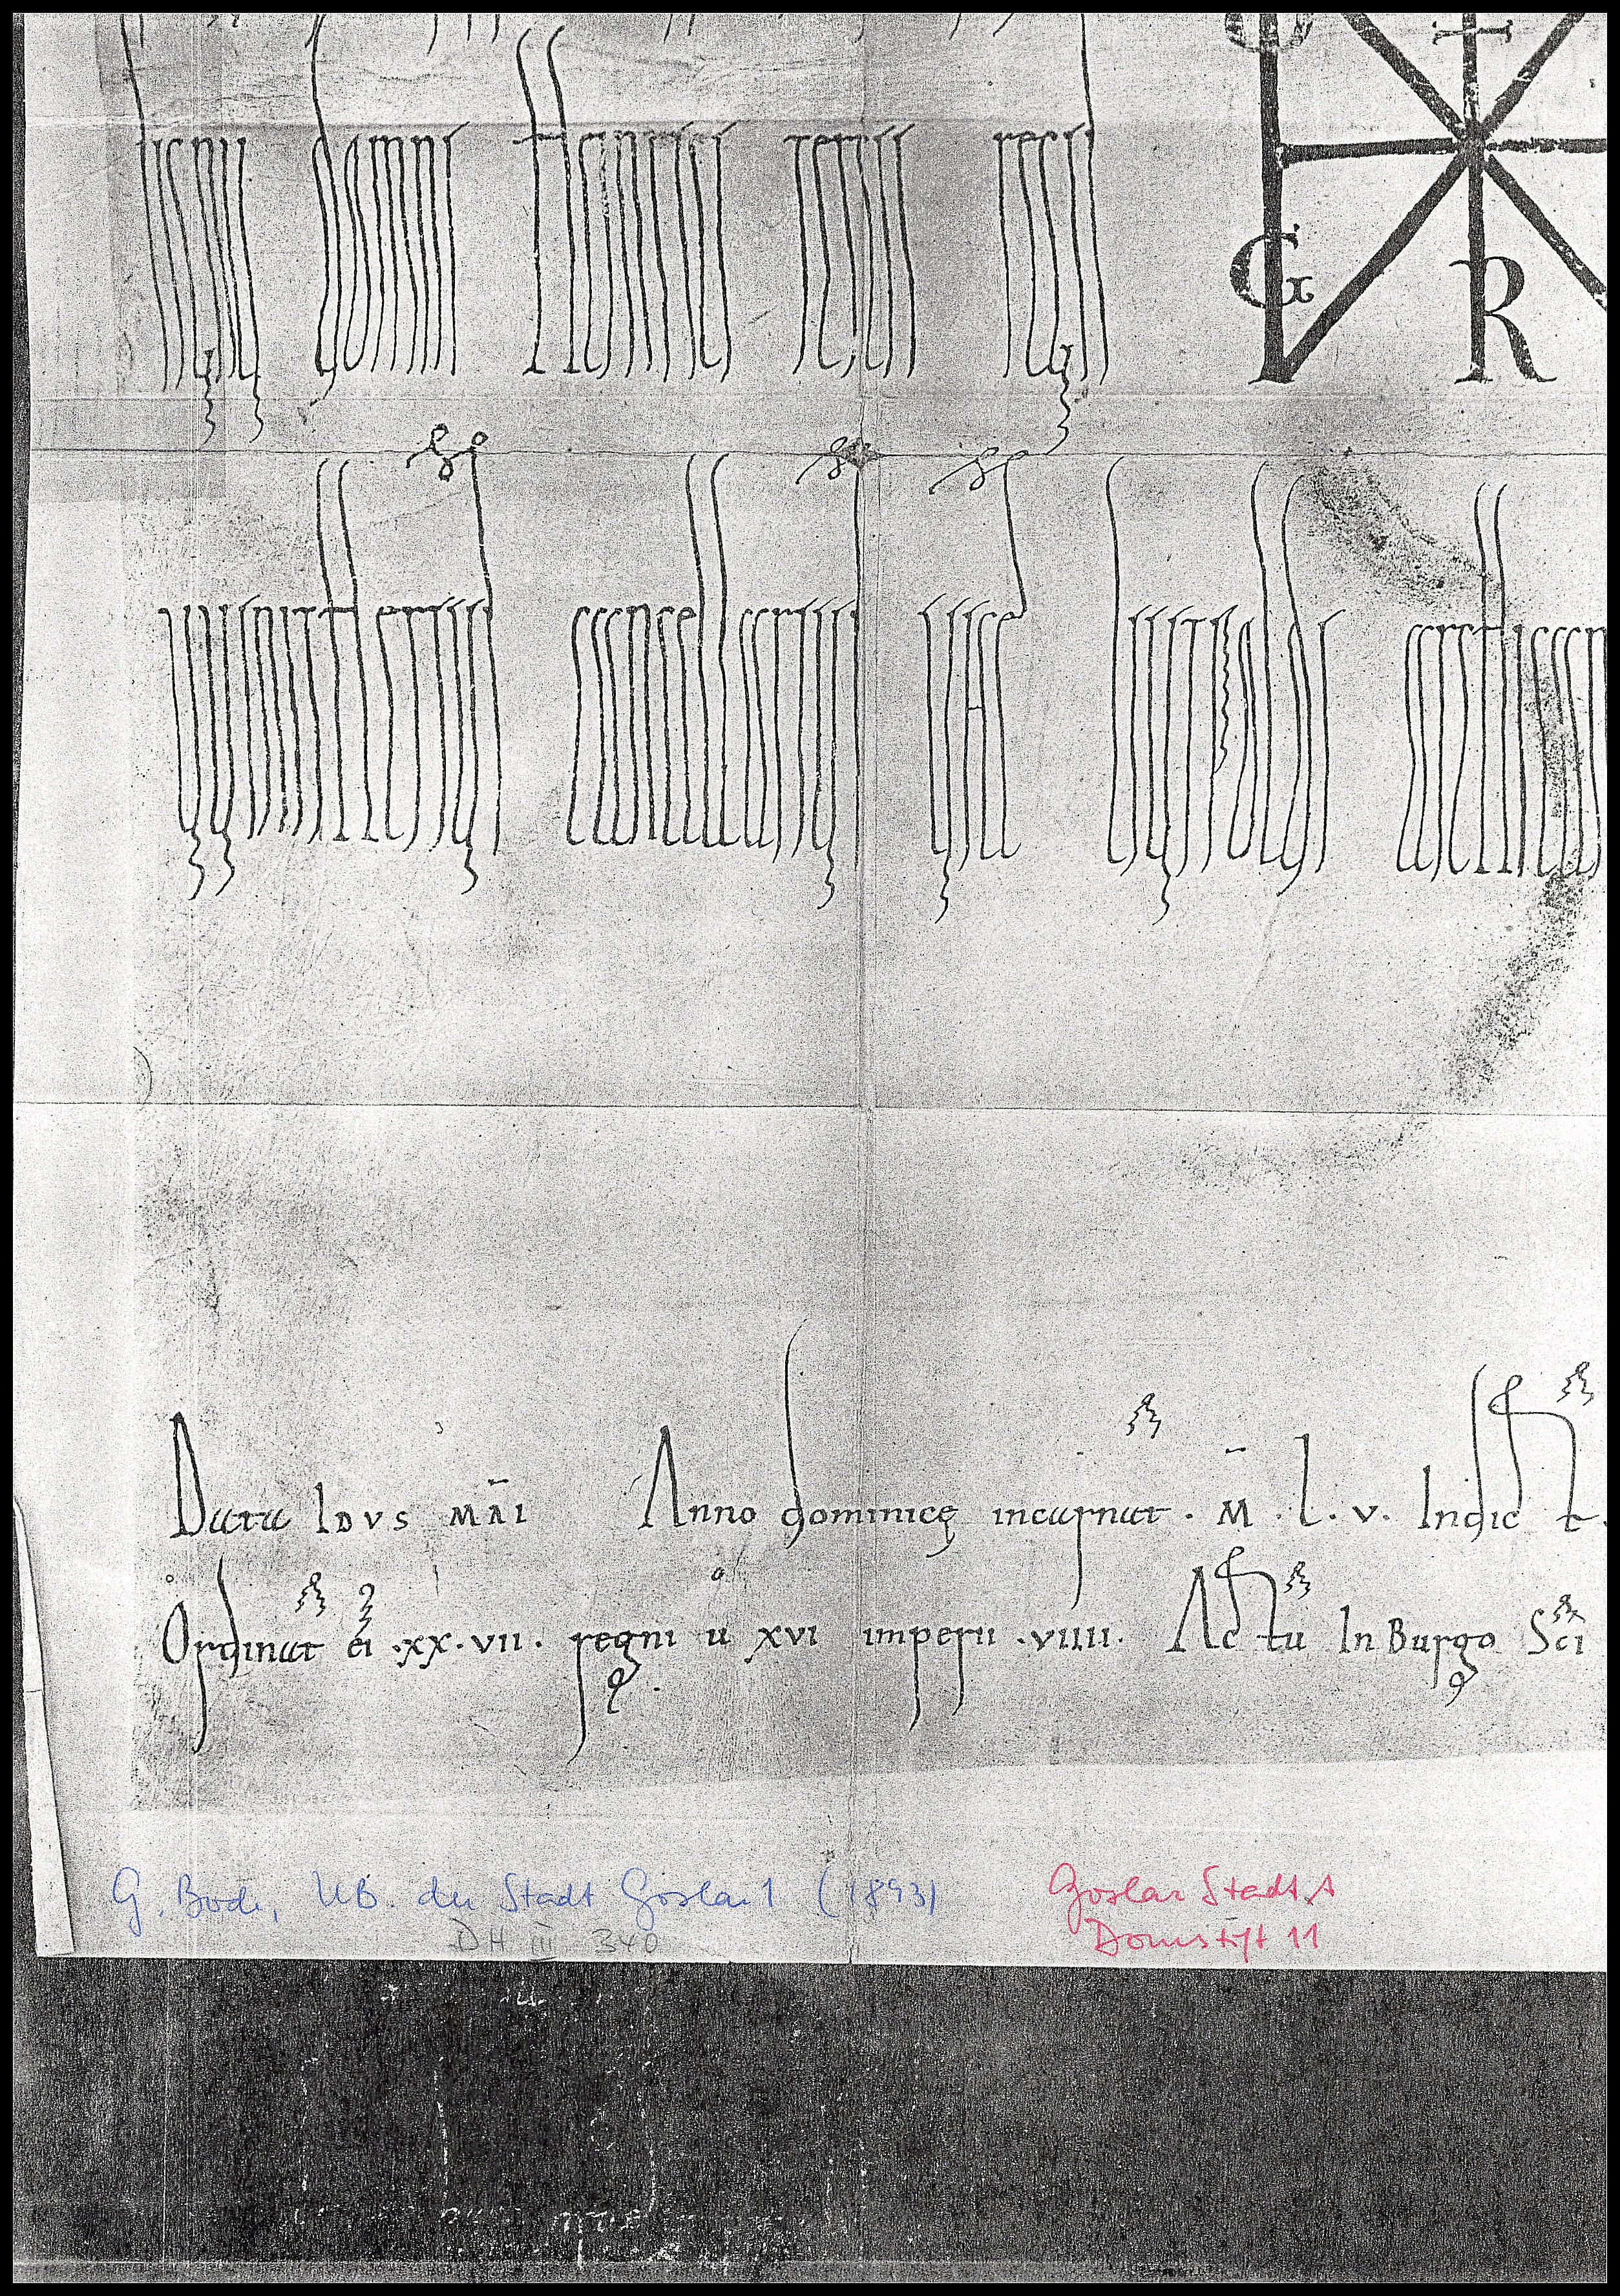 Signum domni Heinrici tercii regis
G R
VVinitherius cancellarius vice Liutpoldi archican
Data Idvs Mai Anno dominicę incarnat . M . l . v . Indict
Ordinat ei . xx . vii . regni u xvi imperii . viiii . Actu In Burgo Sci
G. Bode, UB. der Stadt Goslar 1 (1893) Goslar Stadt A
DH III 340 Domstift 11